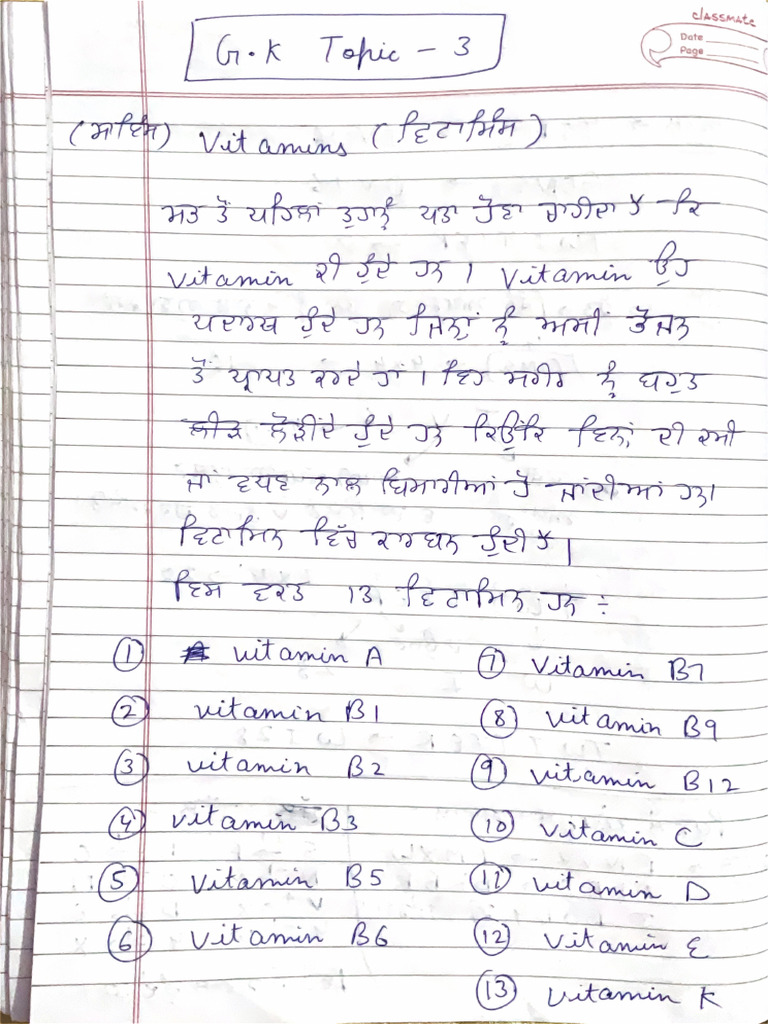 classmate
Date
Page
G.K Topic - 3
(ਸਾਇੰਸ) Vitamins (ਵਿਟਾਮਿੰਸ)
ਸਭ ਤੋਂ ਪਹਿਲਾਂ ਤੁਹਾਨੂੰ ਪਤਾ ਹੋਣਾ ਚਾਹੀਦਾ ਹੈ ਕਿ
Vitamin ਕੀ ਹੁੰਦੇ ਹਨ । Vitamin ਉਹ
ਪਦਾਰਥ ਹੁੰਦੇ ਹਨ ਜਿਨ੍ਹਾਂ ਨੂੰ ਅਸੀਂ ਭੋਜਨ
ਤੋਂ ਪ੍ਰਾਪਤ ਕਰਦੇ ਹਾਂ । ਇਹ ਸਰੀਰ ਨੂੰ ਬਹੁਤ
ਲੋੜੀਂਦੇ ਹੁੰਦੇ ਹਨ ਕਿਉਂਕਿ ਇਨਾਂ ਦੀ ਕਮੀ
ਜਾਂ ਵਧਣ ਨਾਲ ਬਿਮਾਰੀਆਂ ਹੋ ਜਾਂਦੀਆਂ ਹਨ।
ਵਿਟਾਮਿਨ ਵਿੱਚ ਕਾਰਬਨ ਹੁੰਦੀ ਹੈ |
ਇਸ ਵਕਤ 13 ਵਿਟਾਮਿਨ ਹਨ ÷
① vitamin A ⑦ Vitamin B7
② vitamin B1 ⑧ vitamin B9
③ vitamin B2 ⑨ vitamin B12
④ vitamin B3 ⑩ vitamin C
⑤ vitamin B5 ⑪ vitamin D
⑥ vitamin B6 ⑫ vitamin E
⑬ vitamin K